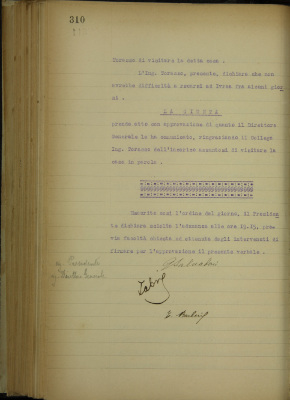 310
Soracco di visitare la detta casa .
L'Ing. Soracco, presente, dichiara che non
avrebbe difficoltà a recarsi ad Ivrea fra alcuni gior
ni .
LA GIUNTA
prende atto con approvazione di quanto il Direttore
Generale le ha comunicato, ringraziando il Collega
Ing. Soracco dell'incarico assuntosi di visitare la
casa in parola .
Esaurito così l'ordine del giorno, il Presiden
te dichiara sciolta l'adunanza alle ore 19.25, pre-
via facoltà chiesta ed ottenuta dagli intervenuti di
firmare per l'approvazione il presente verbale .
Il Presidente
Il Direttore Generale